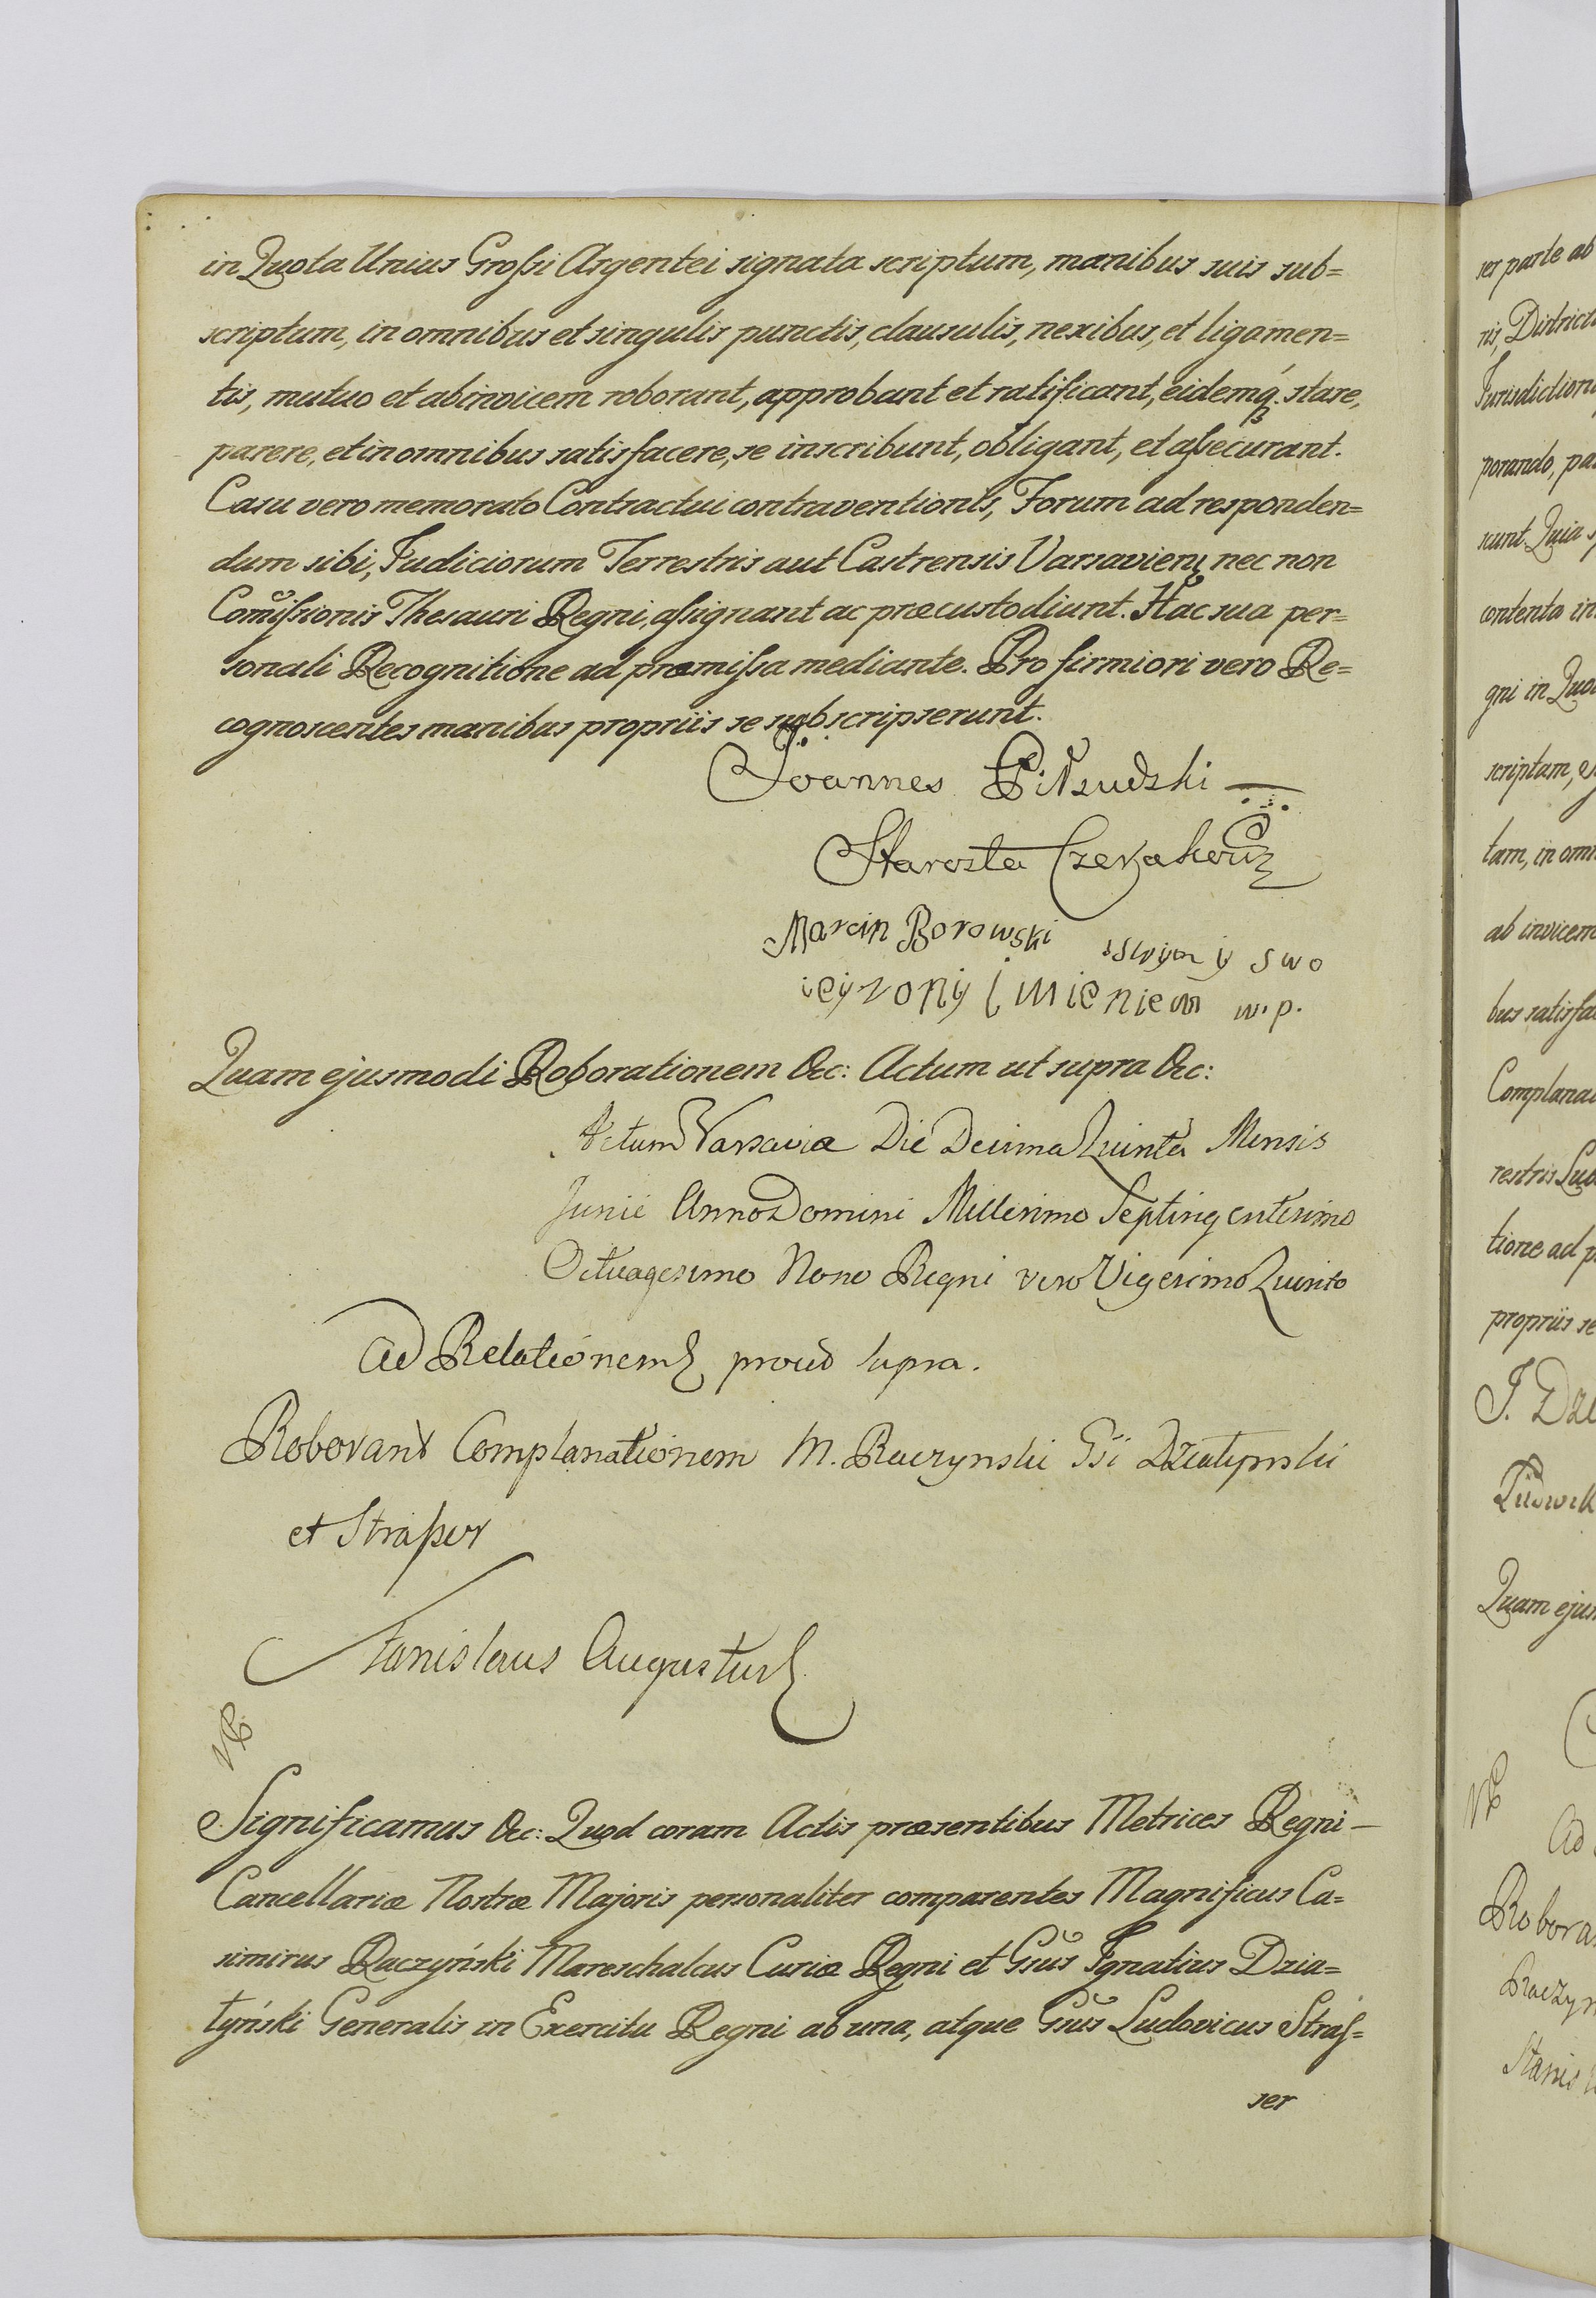 in Quota Unius Grossi Argentei signata scriptum, manibus suis sub=
scriptum, in omnibus et singulis punctis, clausulis, nexibus, et ligamen=
tis, mutuo et abinvicem roborant, approbant et ratificant, eidemq. stare,
parere, et in omnibus satisfacere, se inscribunt, obligant, et assecurant.
Casu vero memorato Contractui contraventionis, Forum ad responden=
dum sibi, Judiciorum Terrestris aut Castrensis Varsavien nec non
Comissionis Thesauri Regni, assignant ac præcustodiunt. Hac sua per=
sonali Recognitione ad præmissa mediante. Pro firmiori vero Re=
cognoscentes manibus propriis se subscripserunt.
Joannes Pilsudzki
Starosta
Marcin Borowski swym y swo
ieÿ zonÿ imieniem m.p.
Quam ejusmodi Roborationem &c: Actum ut supra &c:
Actum Varsaviæ Die Decima Quinta Mensis
Junii Anno Domini Millesimo Septingentesimo
Octuagesimo Nono Regni vero Vigesimo Quinto
Ad Relationem prout supra.
Roborant Complanationem M. Raczynski Gsi Działynski
et Strasser
Stanislaus Augustus
Significamus &c: Quod coram Actis præsentibus Metrices Regni
Cancellariæ Nostræ Majoris personaliter comparentes Magnificus Ca=
simirus Raczyński Mareschalcus Curiæ Regni et Gsus Ignatius Dzia=
łyński Generalis in Exercitu Regni ab una, atque Gsus Ludovicus Stras=
ser
ser parte ab
ris, District
Jurisdiction
porando, pa
sunt Quia
contenta in
gni in Quo
scriptam,
tam, in omn
ab invicem
bus satisfa
Complana
restris
tione ad p
propriis se
J. Dzi
Ludwik
Quam ejus
Ad
Robora
Raczyn
Stanis